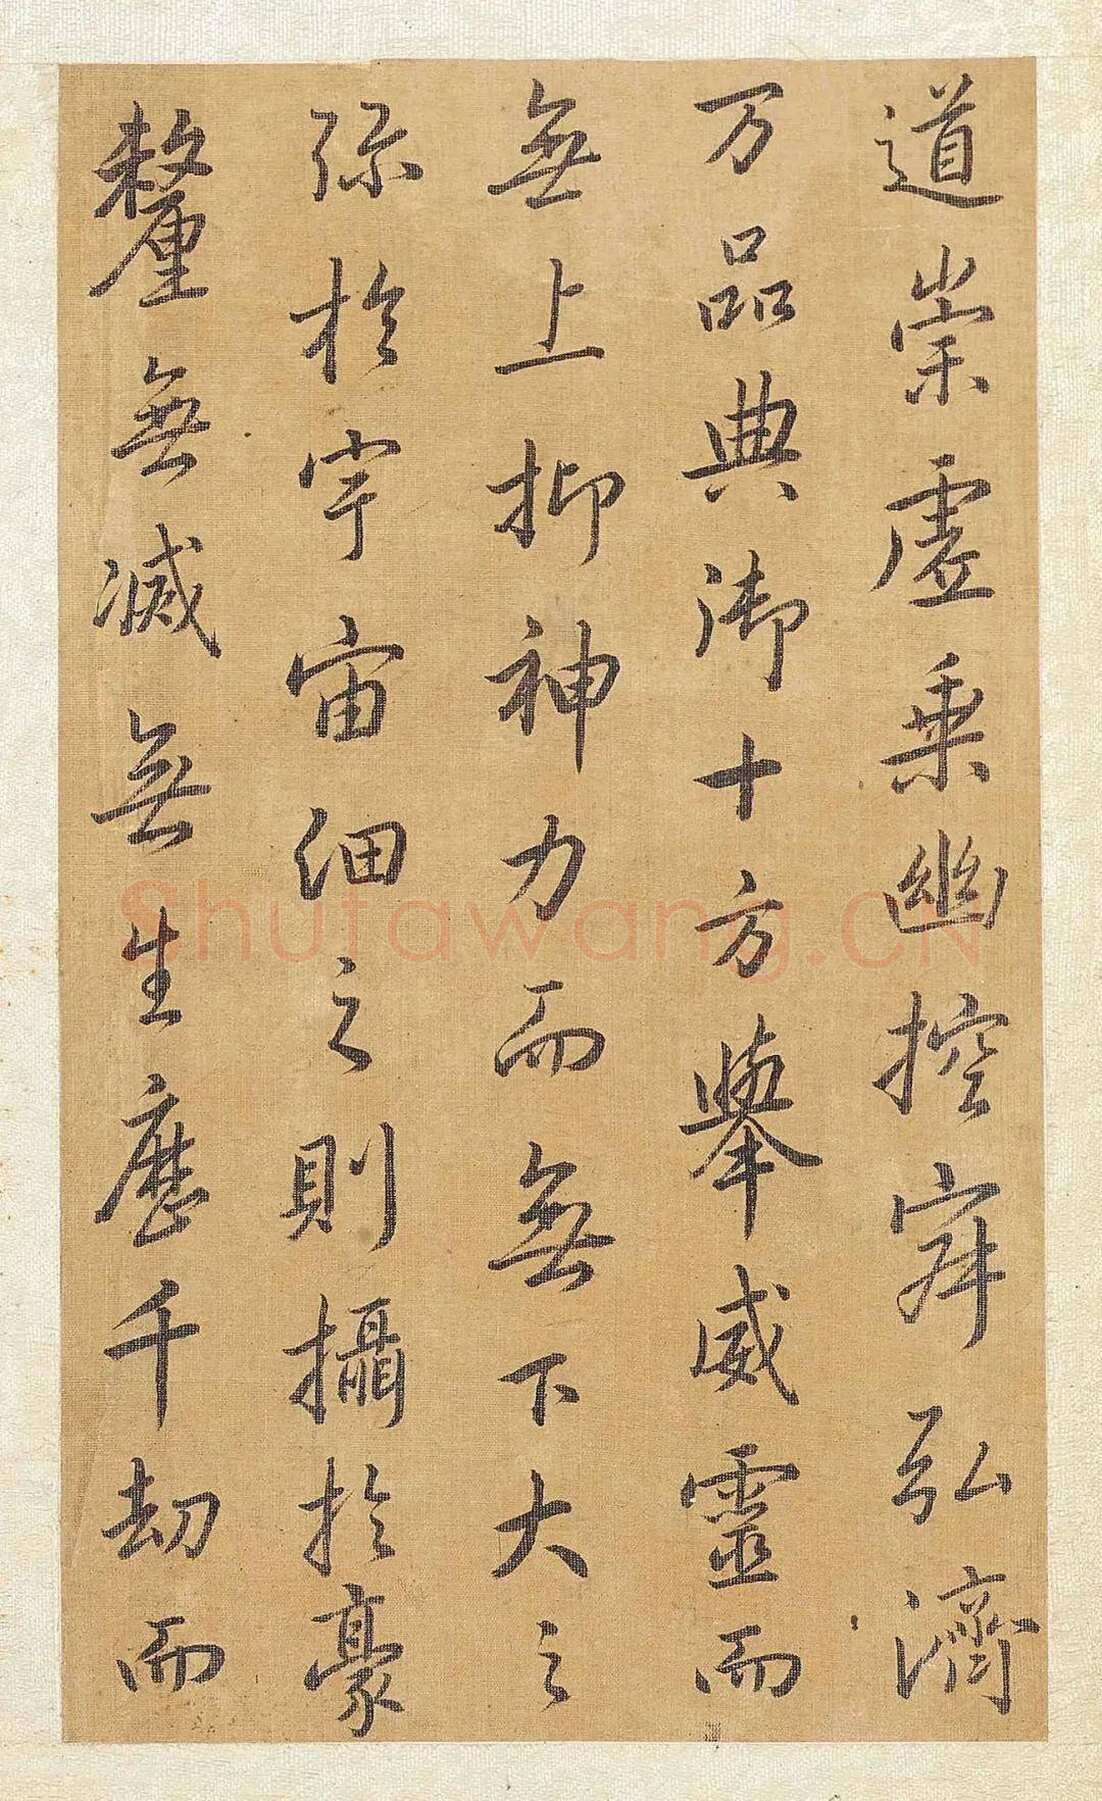 道崇虛乗幽控寂弘濟
万品典御十方舉威靈而
無上抑神力而無下大之
弥於宇宙細之則攝於豪
釐無滅無生歷千劫而
Shufawang.CN